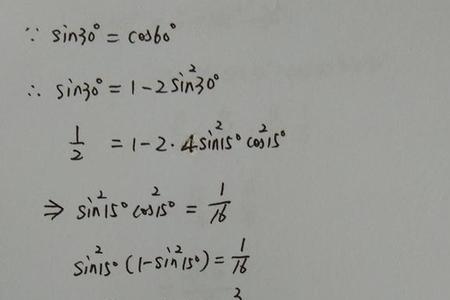 ∵ sin30° = cos60°
∴ sin30° = 1 - 2sin²30°
1/2 = 1 - 2 · 4sin²15° cos²15°
⇒ sin²15° cos²15° = 1/16
sin²15° (1 - sin²15°) = 1/16